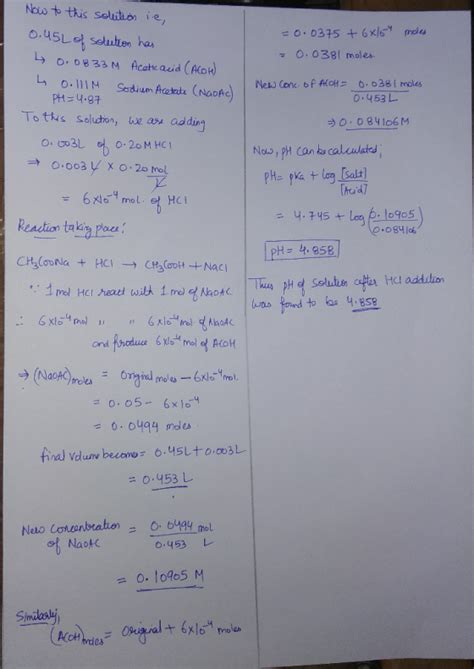 Now to this solution i.e,
0.45L of solution has
↳ 0.0833 M Acetic acid (ACOH)
↳ 0.111 M Sodium Acetate (NaOAC)
PH = 4.87
To this solution, we are adding
0.003L of 0.20M HCl
⇒ 0.003 L × 0.20 mol/L
= 6×10⁻⁴ mol. of HCl
Reaction taking place:
CH₃COONa + HCl → CH₃COOH + NaCl
∵ 1 mol HCl react with 1 mol of NaOAC
∴ 6×10⁻⁴ mol " " 6×10⁻⁴ mol of NaOAC
and produce 6×10⁻⁴ mol of ACOH
⇒ (NaOAC)moles = Original moles − 6×10⁻⁴ mol.
= 0.05 − 6×10⁻⁴
= 0.0494 moles
final volume becomes = 0.45L + 0.003L
= 0.453L
New Concentration of NaOAC = 0.0494 mol / 0.453 L
= 0.10905 M
Similarly,
(ACOH)moles = Original + 6×10⁻⁴ moles
= 0.0375 + 6×10⁻⁴ moles
= 0.0381 moles
New Conc. of ACOH = 0.0381 moles / 0.453L
⇒ 0.084106M
Now, pH can be calculated;
pH = pKa + log [Salt]/[Acid]
= 4.745 + log (0.10905/0.084106)
pH = 4.858
Thus pH of solution after HCl addition
was found to be 4.858